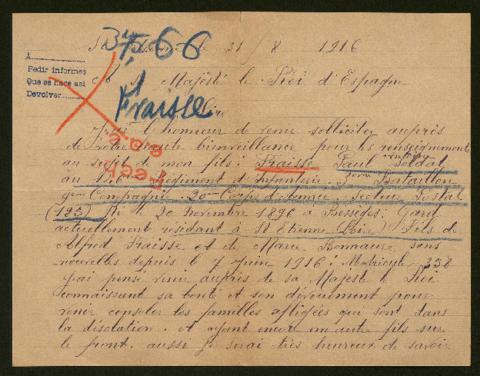 31/8 1916
Bª 766
A
Pedir informes
Que se hace así
Devolver
Majesté le Roi d'Espagne
Fraisse
Sire
l'honneur de venir solliciter auprès
de Votre haute bienveillance pour les renseignements
au sujet de mon fils: Fraisse Paul Soldat
au Régiment d'Infanterie 3ème Bataillon
9e Compagnie 20e Corps d'armée Secteur Postal
(125) Né le 20 novembre 1896 à Bessèges, Gard
actuellement résidant à St Etienne Loire Fils de
Alfred Fraisse et de Marie sans
nouvelles depuis le 7 Juin 1916: Matricule: 358
j'ai pensé venir auprès de sa Majesté le Roi
connaissant sa bonté et son dévouement pour
venir consoler les familles affligées qui sont dans
la désolation. et ayant encore un autre fils sur
le front, aussi je serai très heureux de savoir